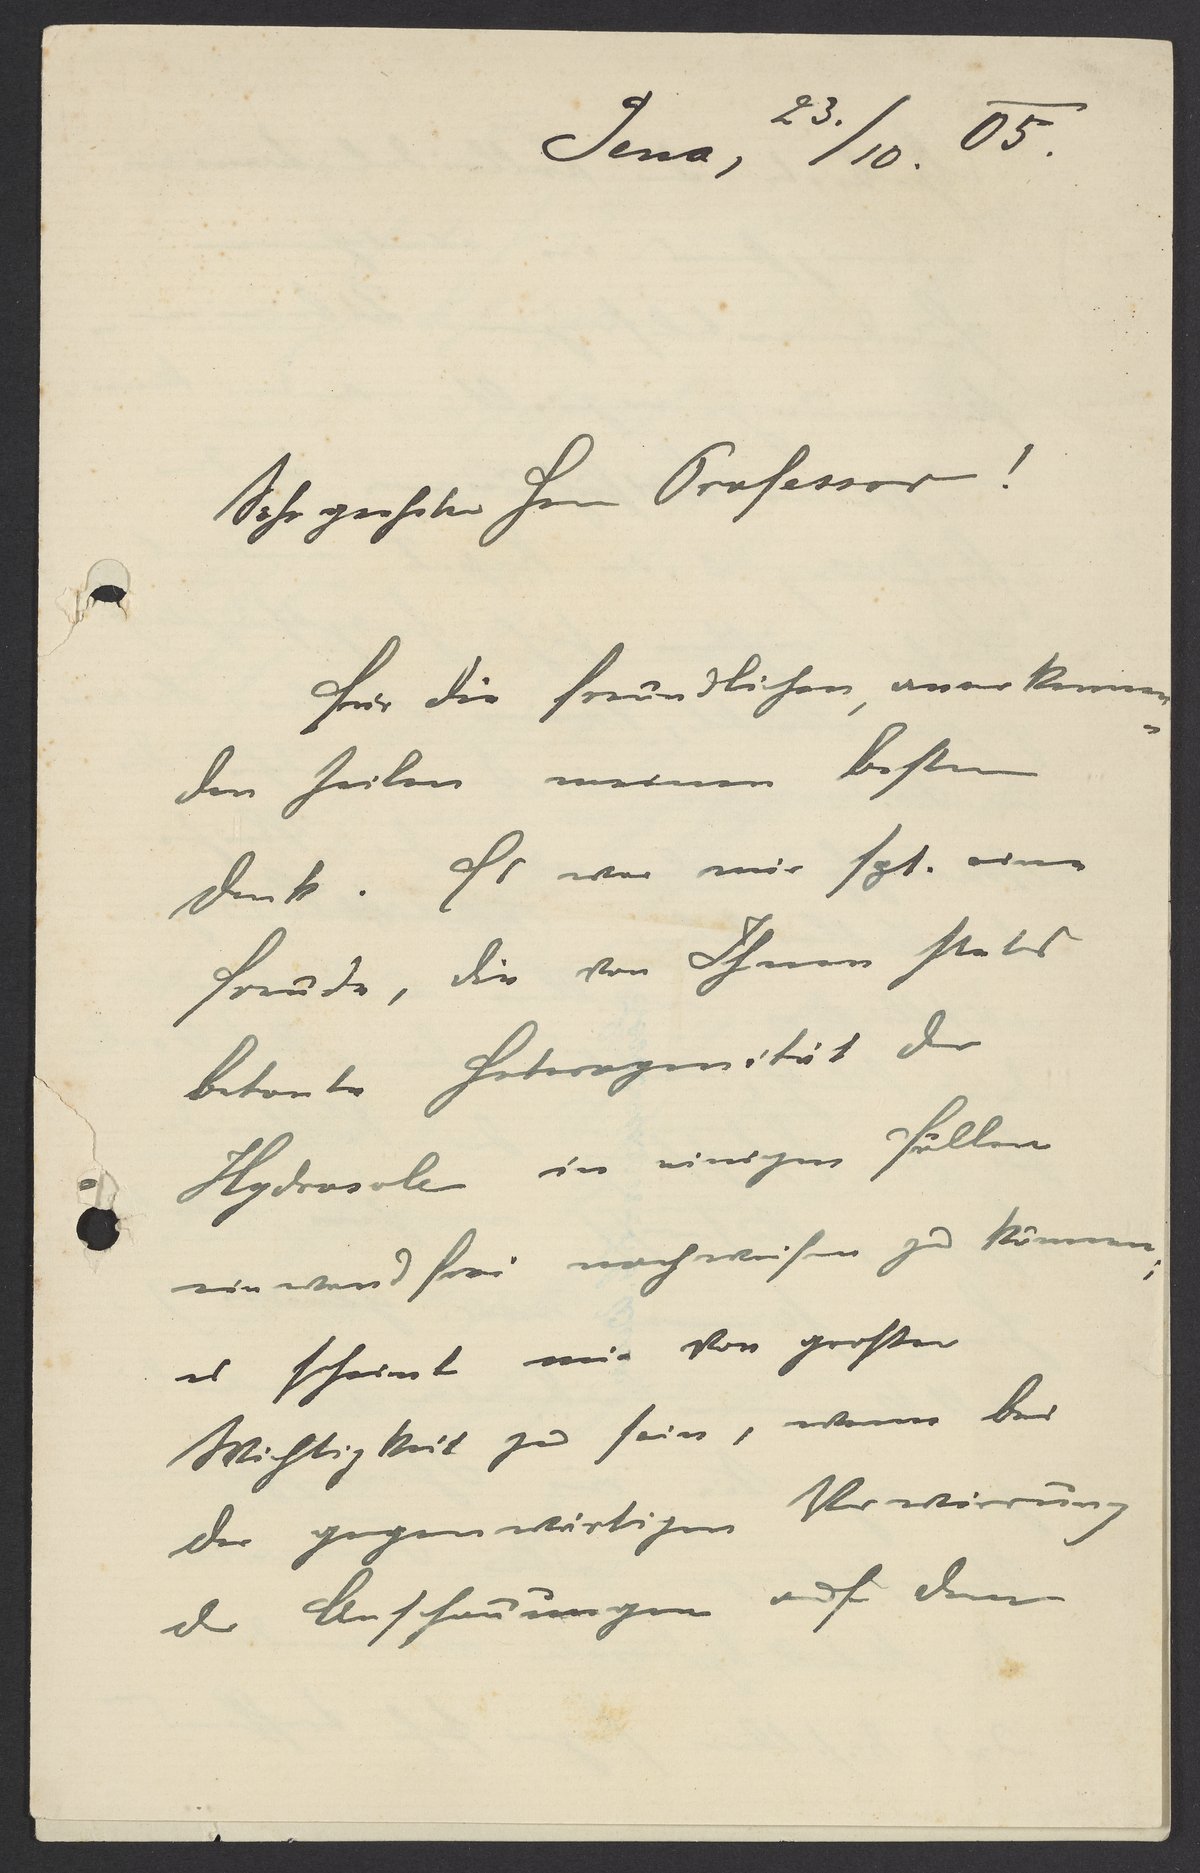 Jena, 23./10. 05.
Sehr geehrter Herr Professor!
Für die freundlichen, anerkennen=
den Zeilen meinen besten
Dank. Es war mir spt. eine
Freude, die von Ihnen stets
betonte Heterogenität der
Hydrosole in einigen Fällen
einwandfrei nachweisen zu können;
es scheint mir von großer
Wichtigkeit zu sein, wenn bei
der gegenwärtigen Verwirrung
der Anschauungen auf dem